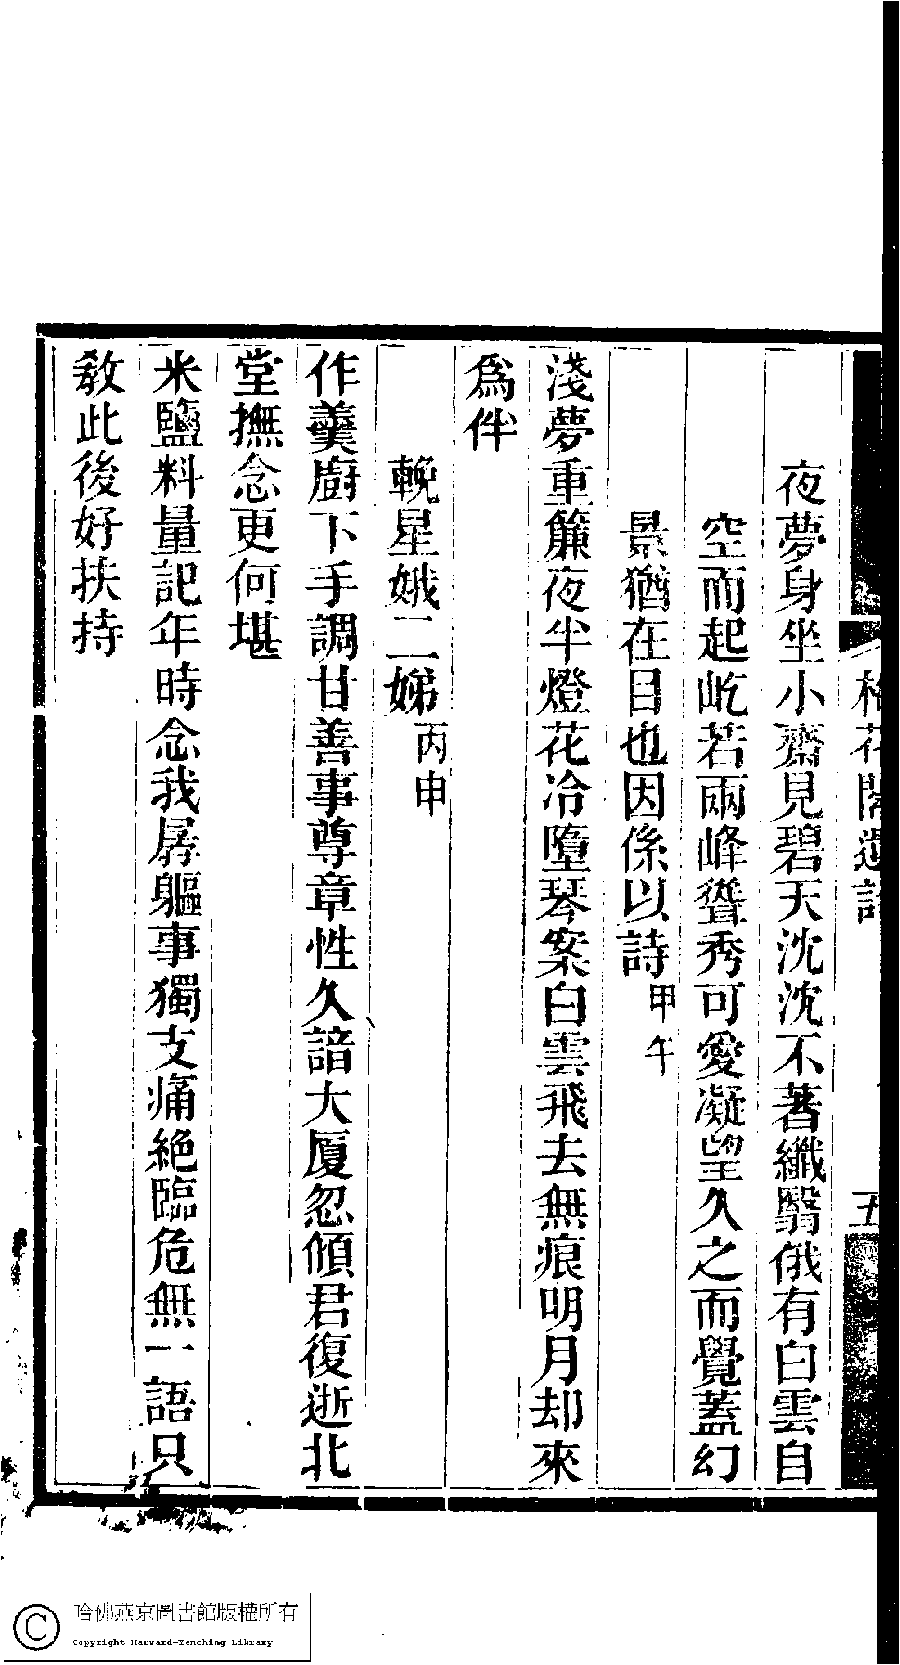 夜夢身坐小齋見碧天沈沈不著纖翳俄有白雲自
空而起屹若兩峰聳秀可愛凝望久之而覺蓋幻
景猶在目也因係以詩甲午
淺夢重簾夜半燈花冷墮琴案白雲飛去無痕明月却來
爲伴
輓星娥二娣丙申
作羹廚下手調甘善事尊章性久諳大厦忽傾君復逝北
堂撫念更何堪
米鹽料量記年時念我孱軀事獨支痛絶臨危無一語只
敎此後好扶持
五
哈佛燕京圖書館版權所有
Copyright Harvard-Yenching Library